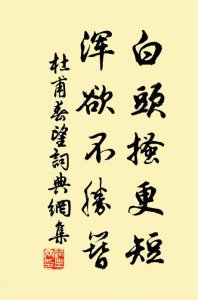 白頭搔更短
浑欲不勝簪
杜甫春望詞典網集